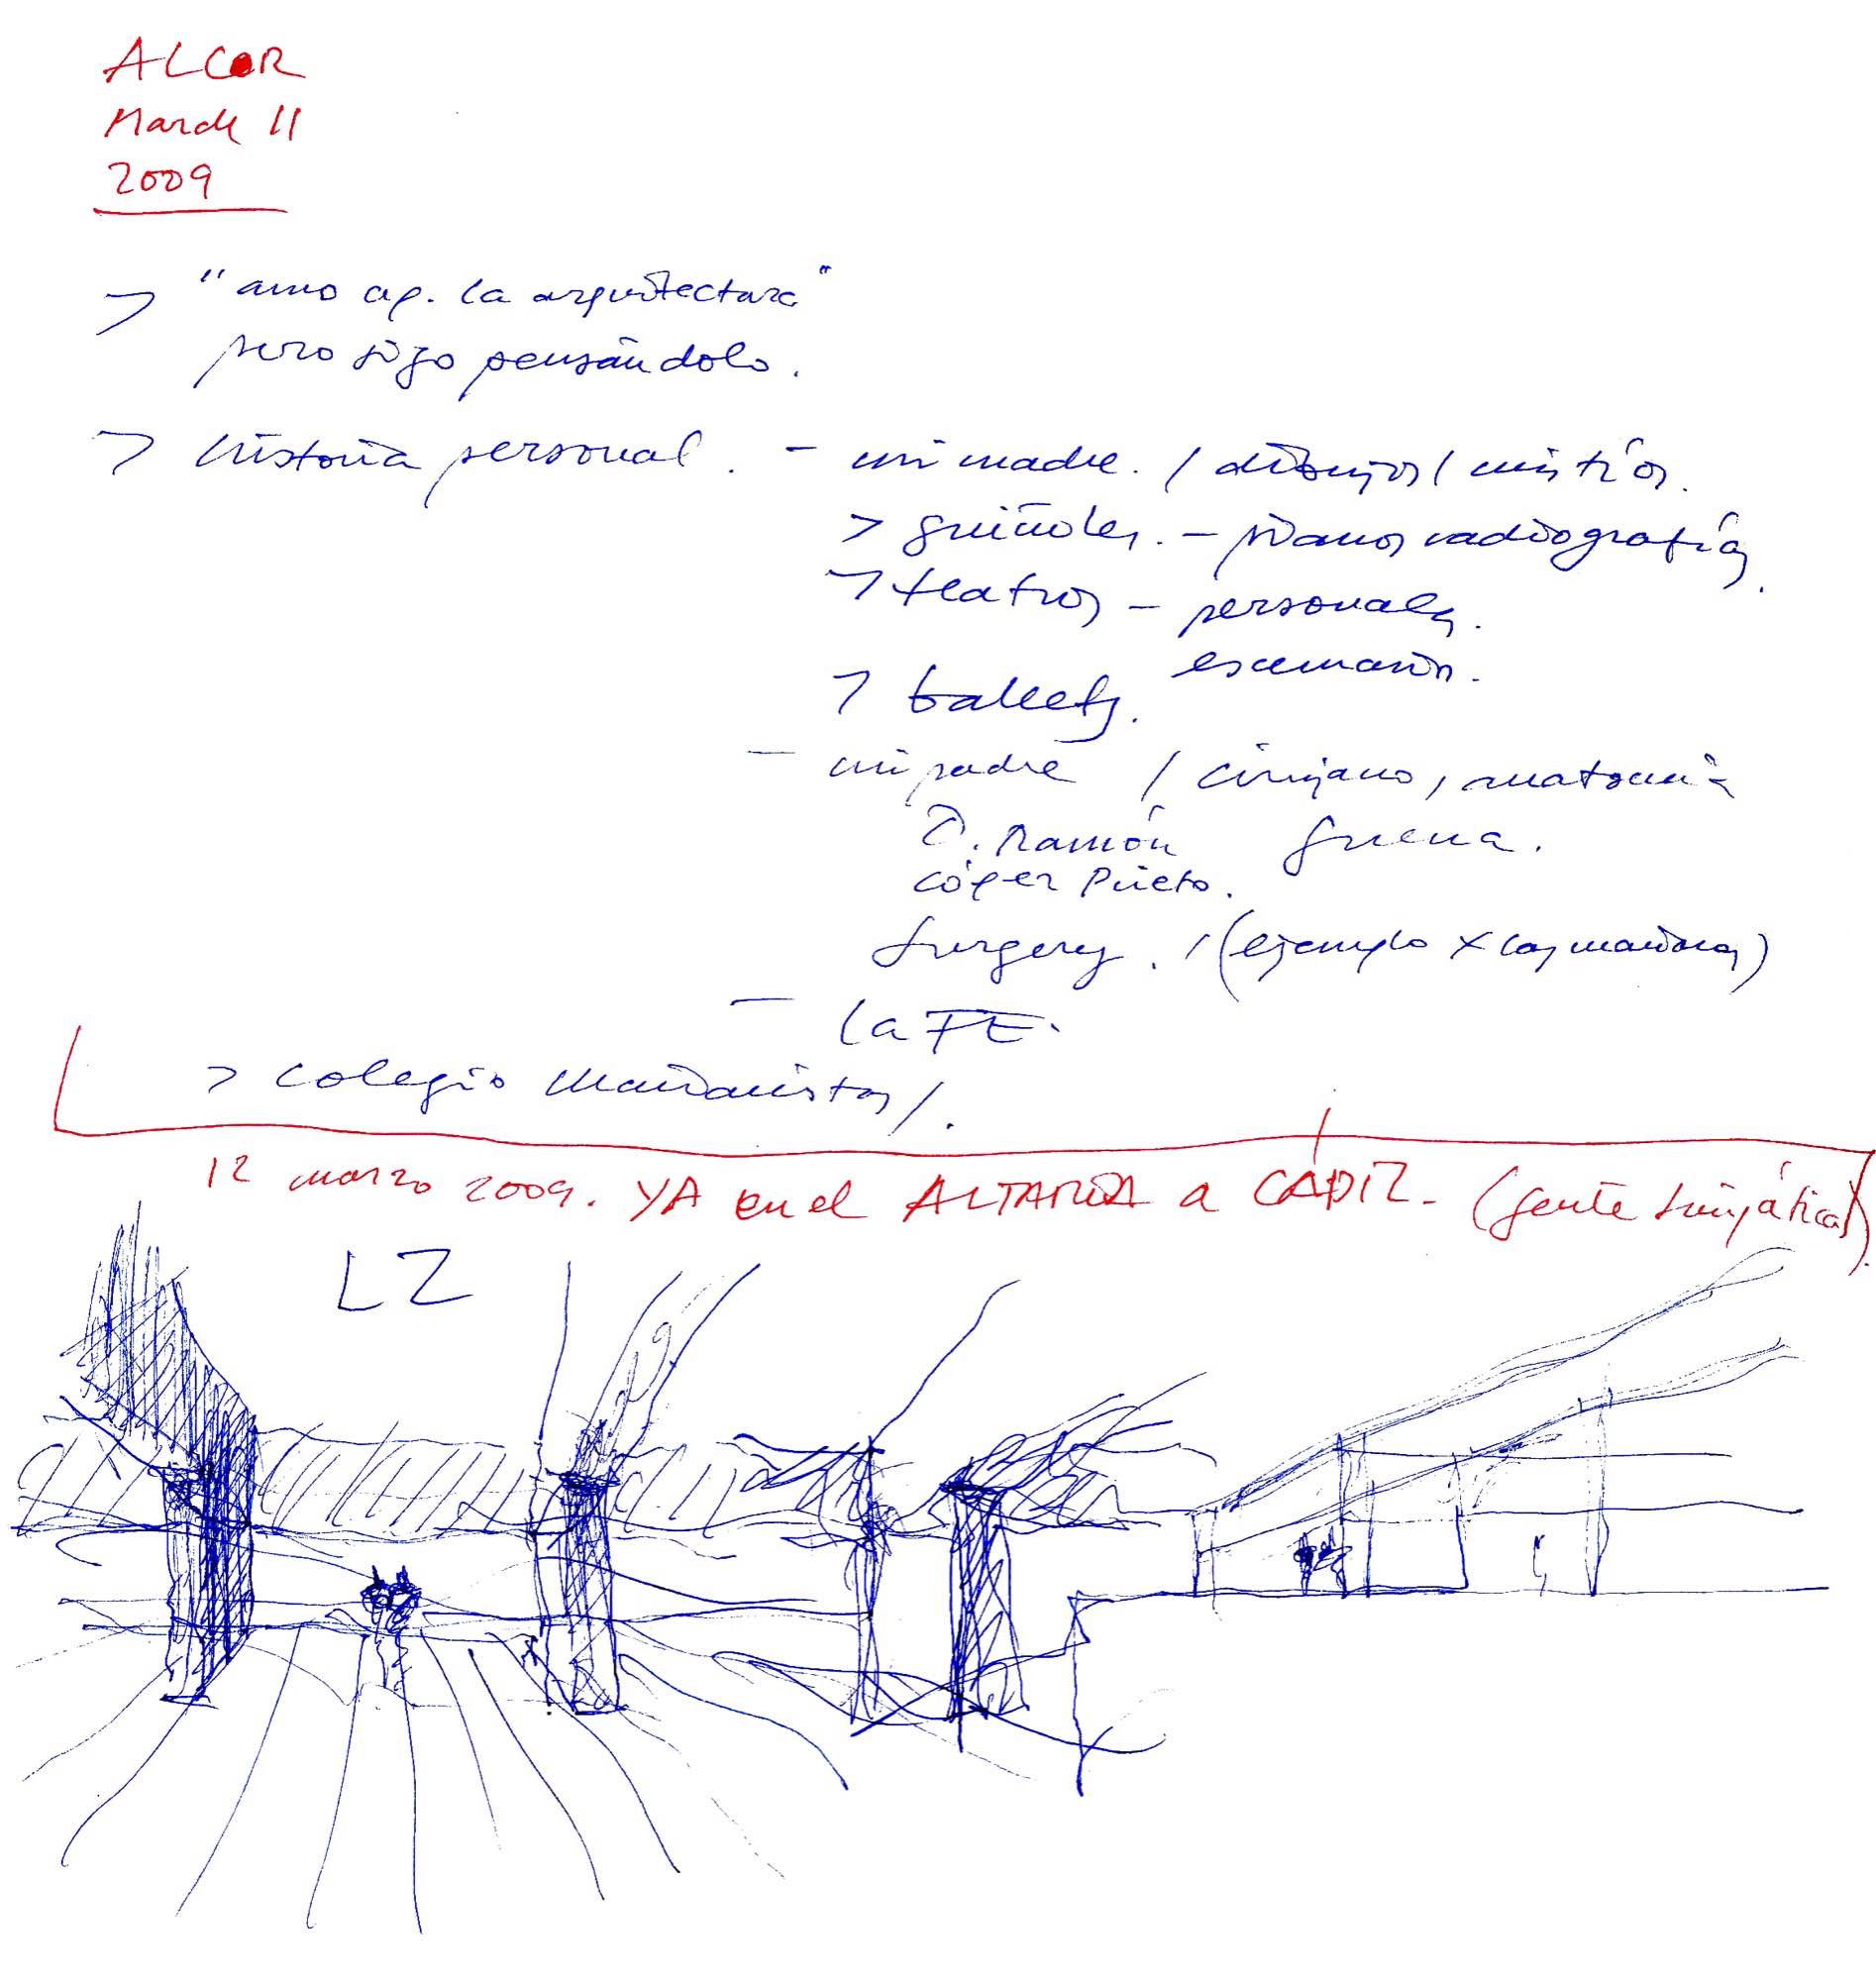 ALCOR
March 11
2009
> "amo ap. la arquitectura"
pero sigo pensándolo.
> historia personal. - mi madre. / dibujos / mis tíos.
> guiñoles. - pianos radiografías.
> teatros - personales.
escenarios.
> ballets.
- mi padre / cirujano, anatomía
D. Ramón guerra.
López Prieto.
Surgery. / (ejemplo x las mañanas)
- la FE.
> colegio Marianistas /.
12 marzo 2009. YA en el ALTARIA a CÁDIZ. (gente simpática).
LZ